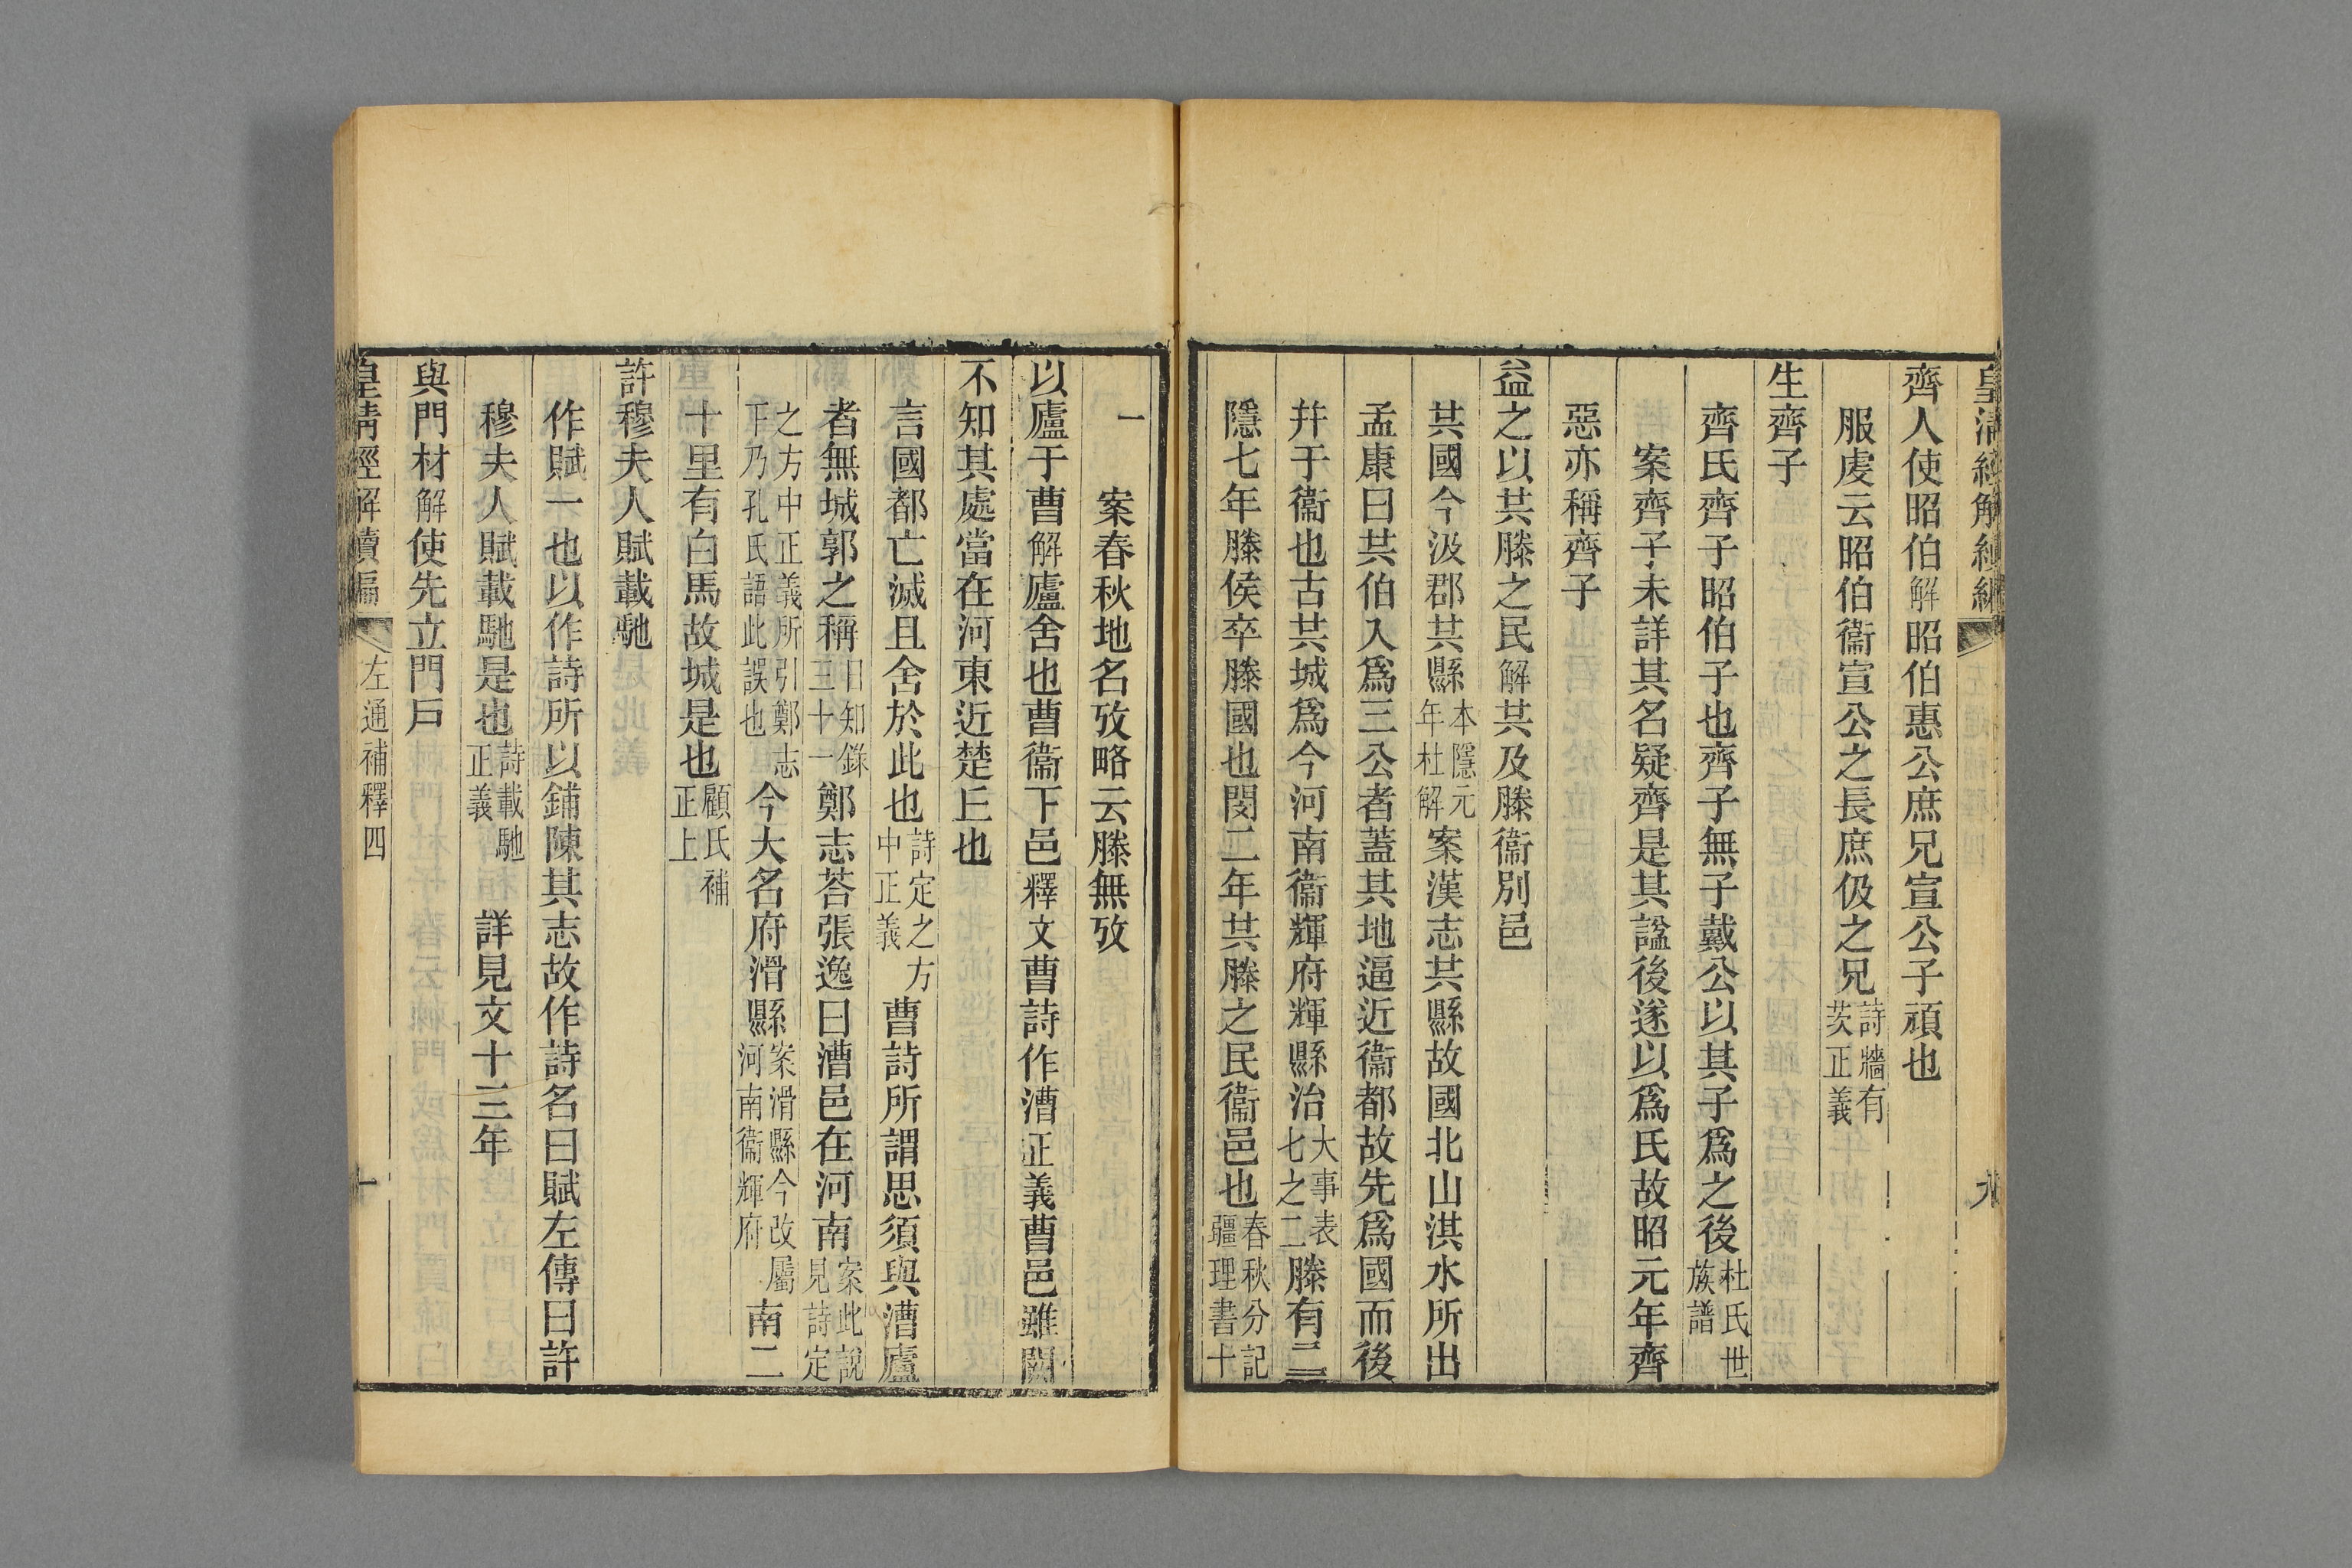 皇清經解續編　九
齊人使昭伯解昭伯惠公庶兄宣公子頑也
服虔云昭伯衞宣公之長庶伋之兄詩牆有茨正義
生齊子
齊氏齊子昭伯子也齊子無子戴公以其子爲之後杜氏世族譜
案齊子未詳其名疑齊是其諡後遂以爲氏故昭元年齊
惡亦稱齊子
益之以共滕之民解共及滕衞別邑
共國今汲郡共縣本隱元年杜解案漢志共縣故國北山淇水所出
孟康曰共伯入爲三公者蓋其地逼近衞都故先爲國而後
幷于衞也古共城爲今河南衞輝府輝縣治大事表七之二滕有二
隱七年滕侯卒滕國也閔二年共滕之民衞邑也春秋分記疆理書十
一
案春秋地名攷略云滕無攷
以廬于曹解廬舍也曹衞下邑釋文曹詩作漕正義曹邑雖闕
不知其處當在河東近楚丘也
言國都亡滅且舍於此也詩定之方中正義曹詩所謂思須與漕廬
者無城郭之稱日知錄三十一鄭志荅張逸曰漕邑在河南案此說見詩定
之方中正義所引鄭志下乃孔氏語此誤也今大名府滑縣案滑縣今改屬河南衞輝府南二
十里有白馬故城是也顧氏補正上
許穆夫人賦載馳
作賦一也以作詩所以鋪陳其志故作詩名曰賦左傳曰許
穆夫人賦載馳是也詩載馳正義　詳見文十三年
與門材解使先立門戶
皇清經解續編　左通補釋四　十